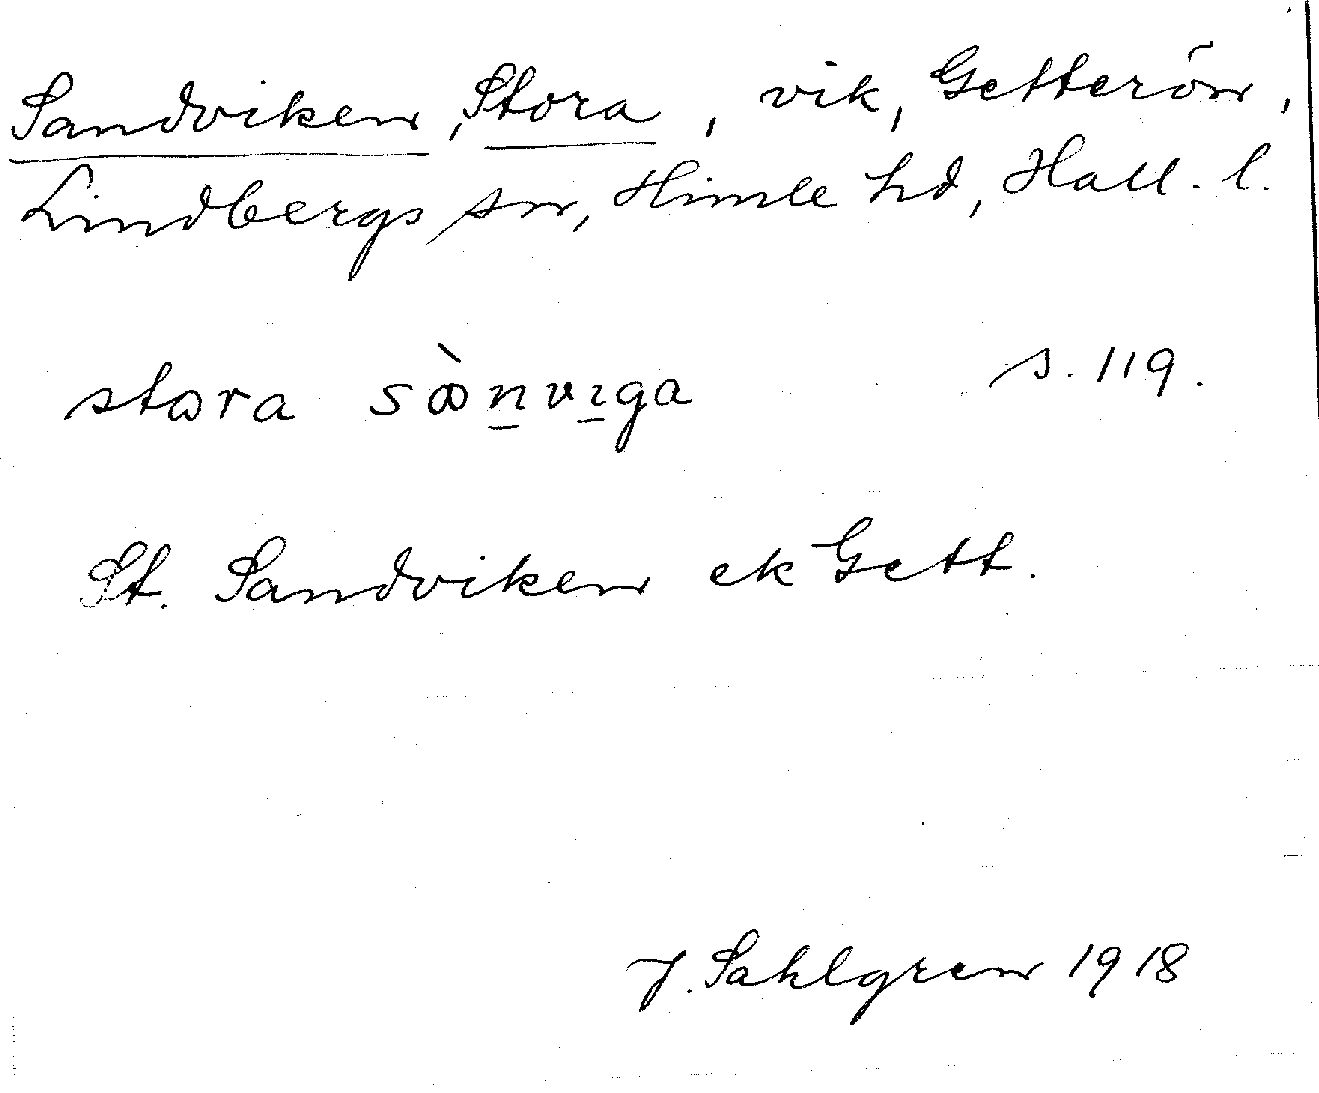 Sandviken, Stora, vik, Getterön,
Lindbergs sn, Himle hd, Hall. l.
stɷra sꝏ̀n̲vı̲ga s. 119.
St. Sandviken ek Gett.
J. Sahlgren 1918